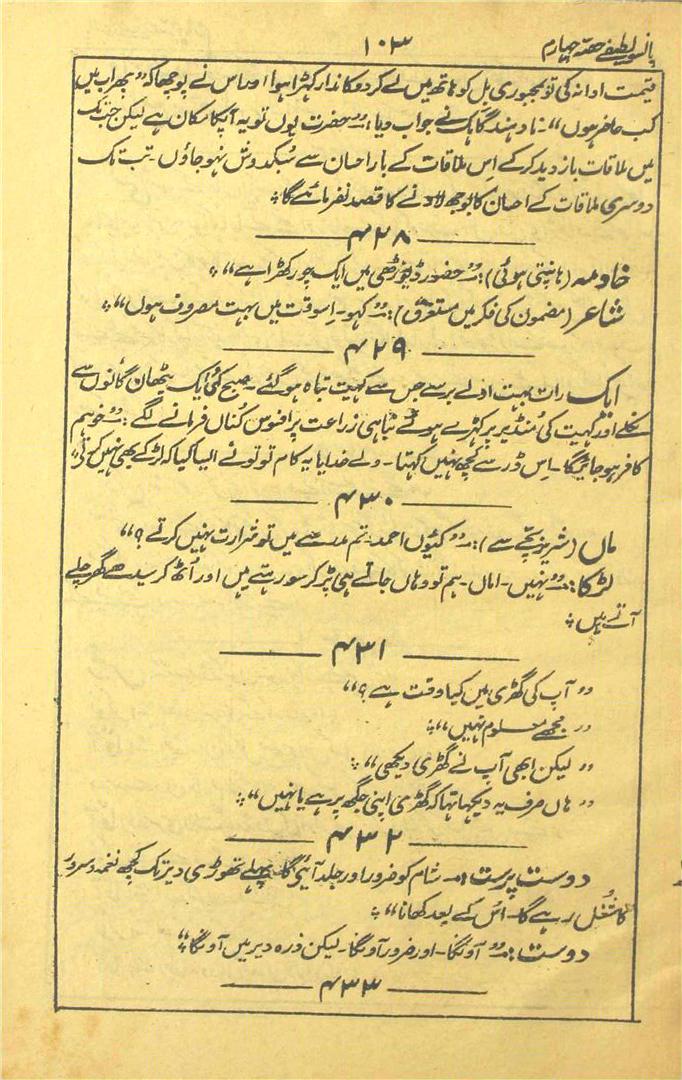 پانسو لطیفے حصہ چہارم
۱۰۳
قیمت ادا نہ کی تو بمجبوری بل کو ہاتھ میں لے کر دوکاندار کہڑا ہوا اور اس نے پوچھا کہ "پھر اب میں
کب حاضر ہوں"۔ نادہند گاہک نے جواب دیا:۔ "حضرت یوں تو یہ آپکا مکان ہے لیکن جب تک
میں ملاقات بازدید کرکے اِس ملاقات کے بارِ احسان سے سُبکدوش نہو جاؤں۔ تب تک
دوسری ملاقات کے احسان کا بوجھ لادنے کا قصد نفرمائے گا؛
۴۲۸
خادمہ (ہانپتی ہوئی):۔ "حضور ڈیوڑھی میں ایک چور کھڑا ہے"؛
شاعر (مضمون کی فکر میں مستغرق):۔ "کہو۔ اِسوقت میں بہت مصروف ہوں"؛
۴۲۹
ایک رات بہت اولے برسے جس سے کہیت تباہ ہوگئے۔ صبح کو ایک پٹھان گانوں سے
نکلے اور کہیت کی مُنڈیر پر کہڑے ہوئے تباہی زراعت پر افسوس کُناں فرمانے لگے:۔ "خو ہم
کافر ہو جائیگا۔ اِس ڈر سے کچھ نہیں کہتا۔ ولے خدایا یہ کام تو توئے ایسا کیا کہ لڑکے بھی نہیں کرتے"
۴۳۰
ماں (شریر بچّے سے):۔ "کیوں احمد۔ تم مدرسے میں تو شرارت نہیں کرتے؟"
لڑکا:۔ "نہیں۔ اماں۔ ہم تو وہاں جاتے ہی پڑ کر سو رہتے ہیں اور اُٹھ کر سیدھے گھر چلے
آتے ہیں؛
۴۳۱
"آپ کی گھڑی میں کیا وقت ہے؟"
"مجھے معلوم نہیں"؛
"لیکن ابھی آپ نے گھڑی دیکھی"؛
"ہاں صرف یہ دیکہا تہا کہ گھڑی اپنی جگھ پر ہے یا نہیں"؛
۴۳۲
دوست پرست:۔ شام کو ضرور اور جلد آئیے گا پہلے تھوڑی دیر تک کچھ نغمہ و سرور
کا شُغل رہے گا۔ اُس کے بعد کھانا"؛
دوست:۔ "آونگا۔ اور ضرور آونگا۔ لیکن ذرہ دیر میں آونگا"؛
۴۳۳